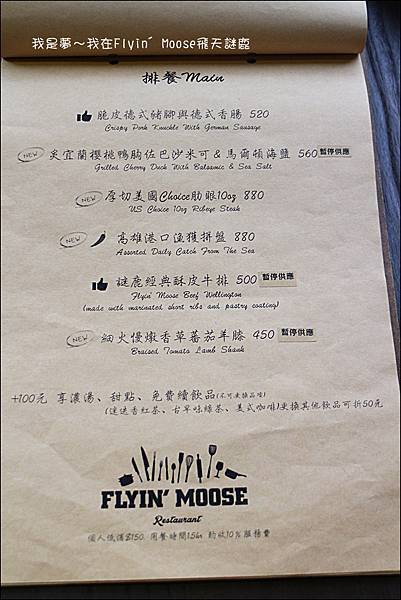 我是夢～我在Flyin' Moose飛天謎鹿
排餐Main
脆皮德式豬腳與德式香腸 520
Crispy Pork Knuckle With German Sausage
NEW 炙宜蘭櫻桃鴨胸佐巴沙米可&馬爾頓海鹽 560 暫停供應
Grilled Cherry Duck With Balsamic & Sea Salt
NEW 厚切美國Choice肋眼10oz 880
US Choice 10oz Ribeye Steak
NEW 高雄港口漁獲拼盤 880
Assorted Daily Catch From The Sea
謎鹿經典酥皮牛排 500 暫停供應
Flyin' Moose Beef Wellington
(made with marinated short ribs and pastry coating)
NEW 細火慢燉香草蕃茄羊膝 450 暫停供應
Braised Tomato Lamb Shank
+100元 享濃湯、甜點、免費續飲品(不可更換品項)
(迷迭香紅茶、古早味綠茶、美式咖啡)更換其他飲品可折50元
FLYIN' MOOSE
Restaurant
個人低消$150 用餐時間1.5hr 酌收10%服務費